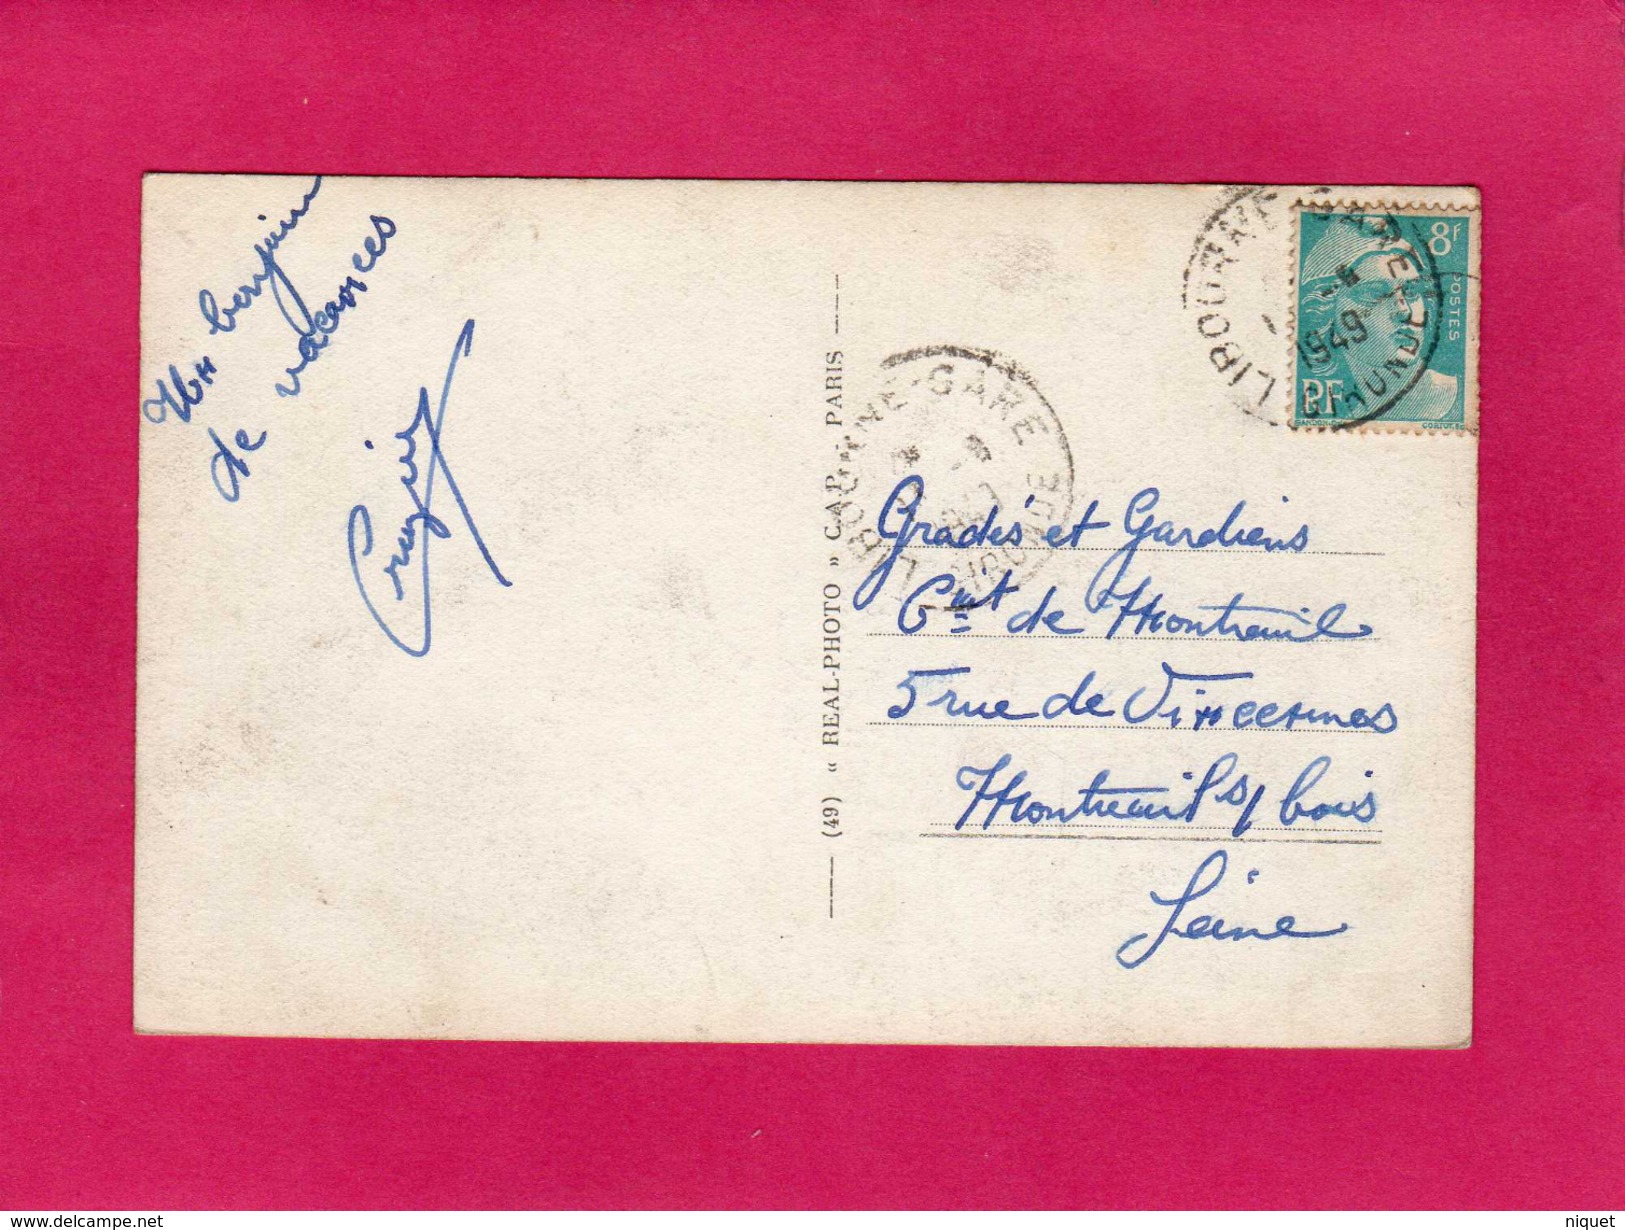 Un benjamin
de vacances
8F
POSTES
RF
LIBOURNE-GARE
1949
GIRONDE
LIBOURNE-GARE
GIRONDE
(49) « REAL-PHOTO » C.A.P. PARIS
Gradés et Gardiens
Cmt de Montreuil
5 rue de Vincennes
Montreuil s/ bois
Seine
www.delcampe.net
niquet